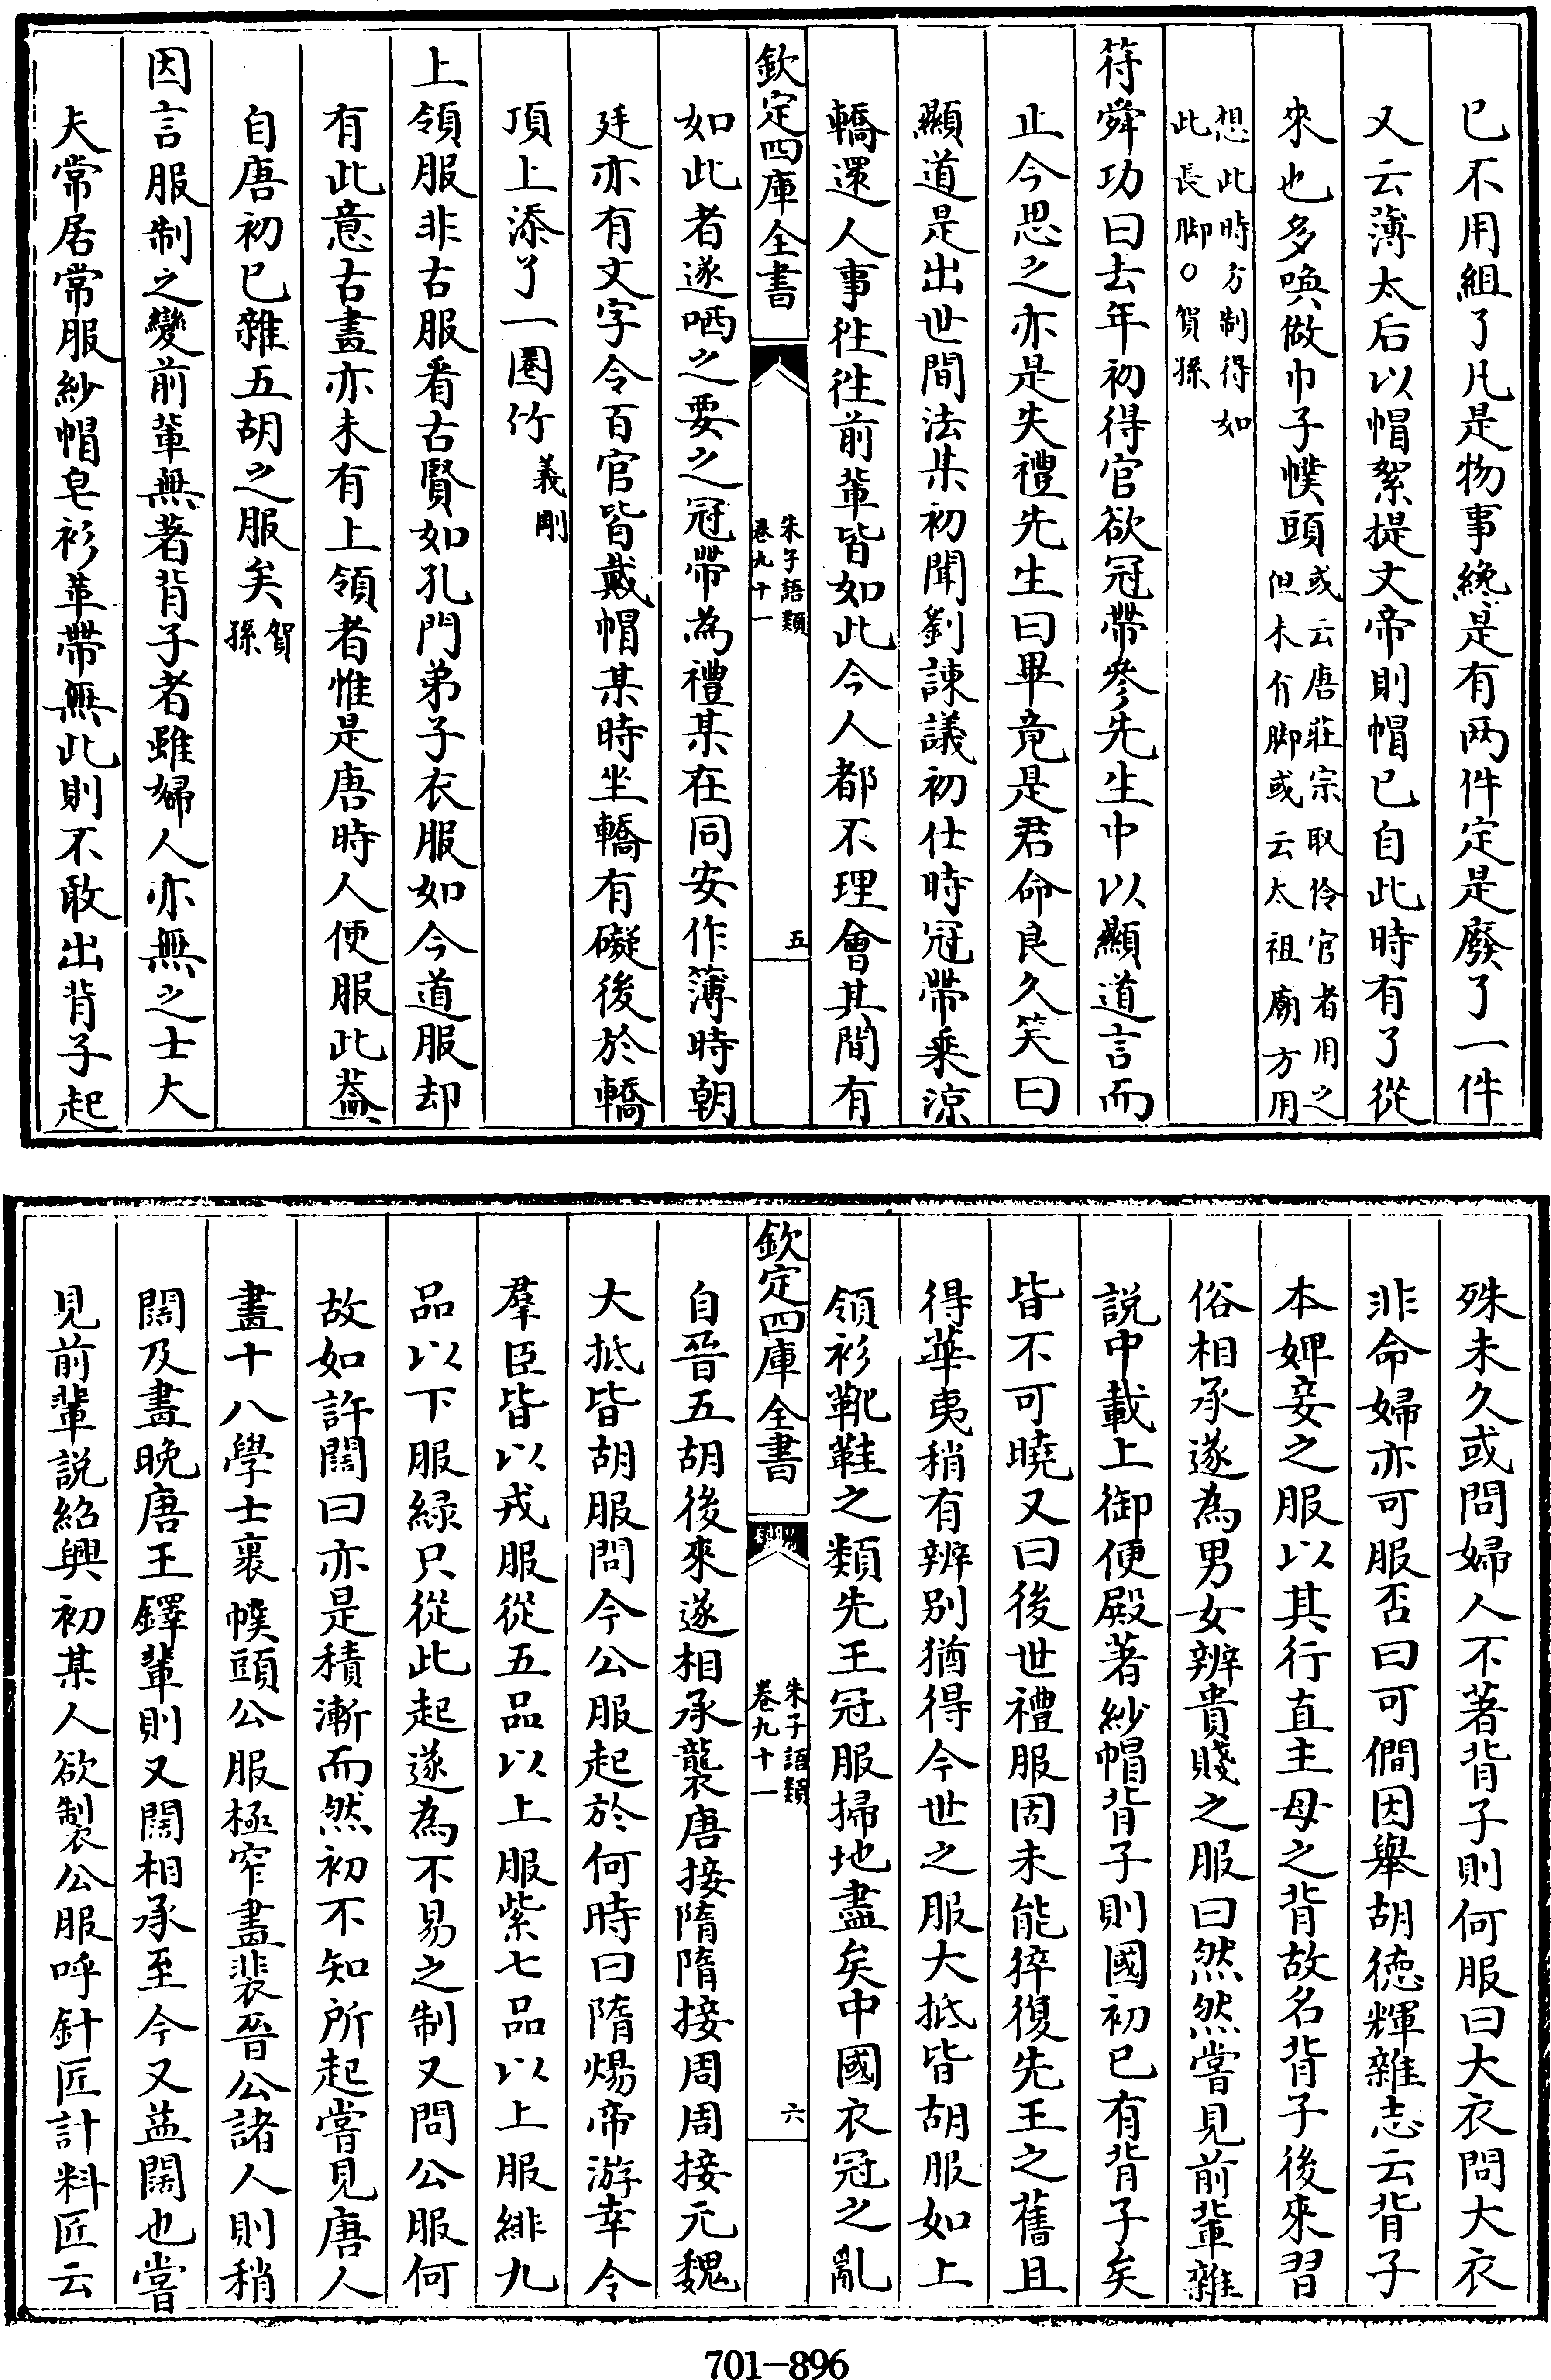 已不用組了凡是物事纔是有两件定是廢了一件
又云薄太后以帽絮提文帝則帽已自此時有了從
來也多喚做巾子幞頭或云唐莊宗取伶官者用之但未有脚或云太祖廟方用
想此時方制得如此長脚○賀孫
符舜功曰去年初得官欲冠帶參先生中以顯道言而
止今思之亦是失禮先生曰畢竟是君命良久笑曰
顯道是出世間法某初聞劉諫議初仕時冠帶乘涼
轎還人事徃徃前輩皆如此今人都不理會其間有
欽定四庫全書
朱子語類
卷九十一
五
如此者遂哂之要之冠帶為禮某在同安作簿時朝
廷亦有文字令百官皆戴帽某時坐轎有礙後於轎
頂上添了一圈竹義剛
上領服非古服看古賢如孔門弟子衣服如今道服却
有此意古畫亦未有上領者惟是唐時人便服此葢
自唐初已雜五胡之服矣賀孫
因言服制之變前輩無著背子者雖婦人亦無之士大
夫常居常服紗帽皂衫革帶無此則不敢出背子起
殊未久或問婦人不著背子則何服曰大衣問大衣
非命婦亦可服否曰可僴因舉胡德輝雜志云背子
本婢妾之服以其行直主母之背故名背子後來習
俗相承遂為男女辨貴賤之服曰然然嘗見前輩雜
說中載上御便殿著紗帽背子則國初已有背子矣
皆不可曉又曰後世禮服固未能猝復先王之舊且
得華夷稍有辨別猶得今世之服大抵皆胡服如上
領衫靴鞋之類先王冠服掃地盡矣中國衣冠之亂
欽定四庫全書
朱子語類
卷九十一
六
自晉五胡後來遂相承襲唐接隋隋接周周接元魏
大抵皆胡服問今公服起於何時曰隋煬帝游幸令
羣臣皆以戎服從五品以上服紫七品以上服緋九
品以下服緑只從此起遂為不易之制又問公服何
故如許闊曰亦是積漸而然初不知所起嘗見唐人
畫十八學士裹幞頭公服極窄畫裴晉公諸人則稍
闊及畫晚唐王鐸輩則又闊相承至今又益闊也嘗
見前輩説紹興初某人欲製公服呼針匠計料匠云
701-896